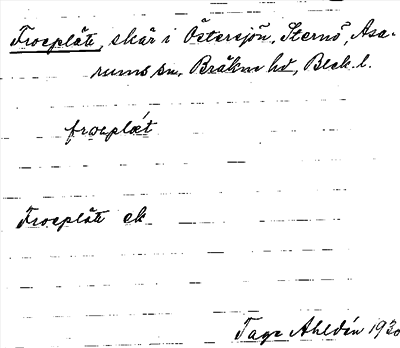 Froeplåte, skär i Östersjön, Sternö, Asa-
rums sn, Bräkne hd, Blek. l.
froeplǽt
Froeplåte ek
Tage Ahldén 1930